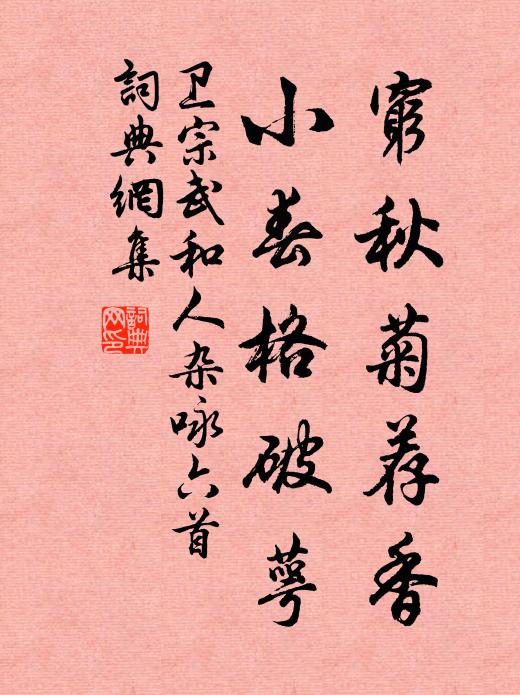 窮秋菊荐香
小春格破萼
卫宗武和人杂咏六首
詞典網集
詞典网印